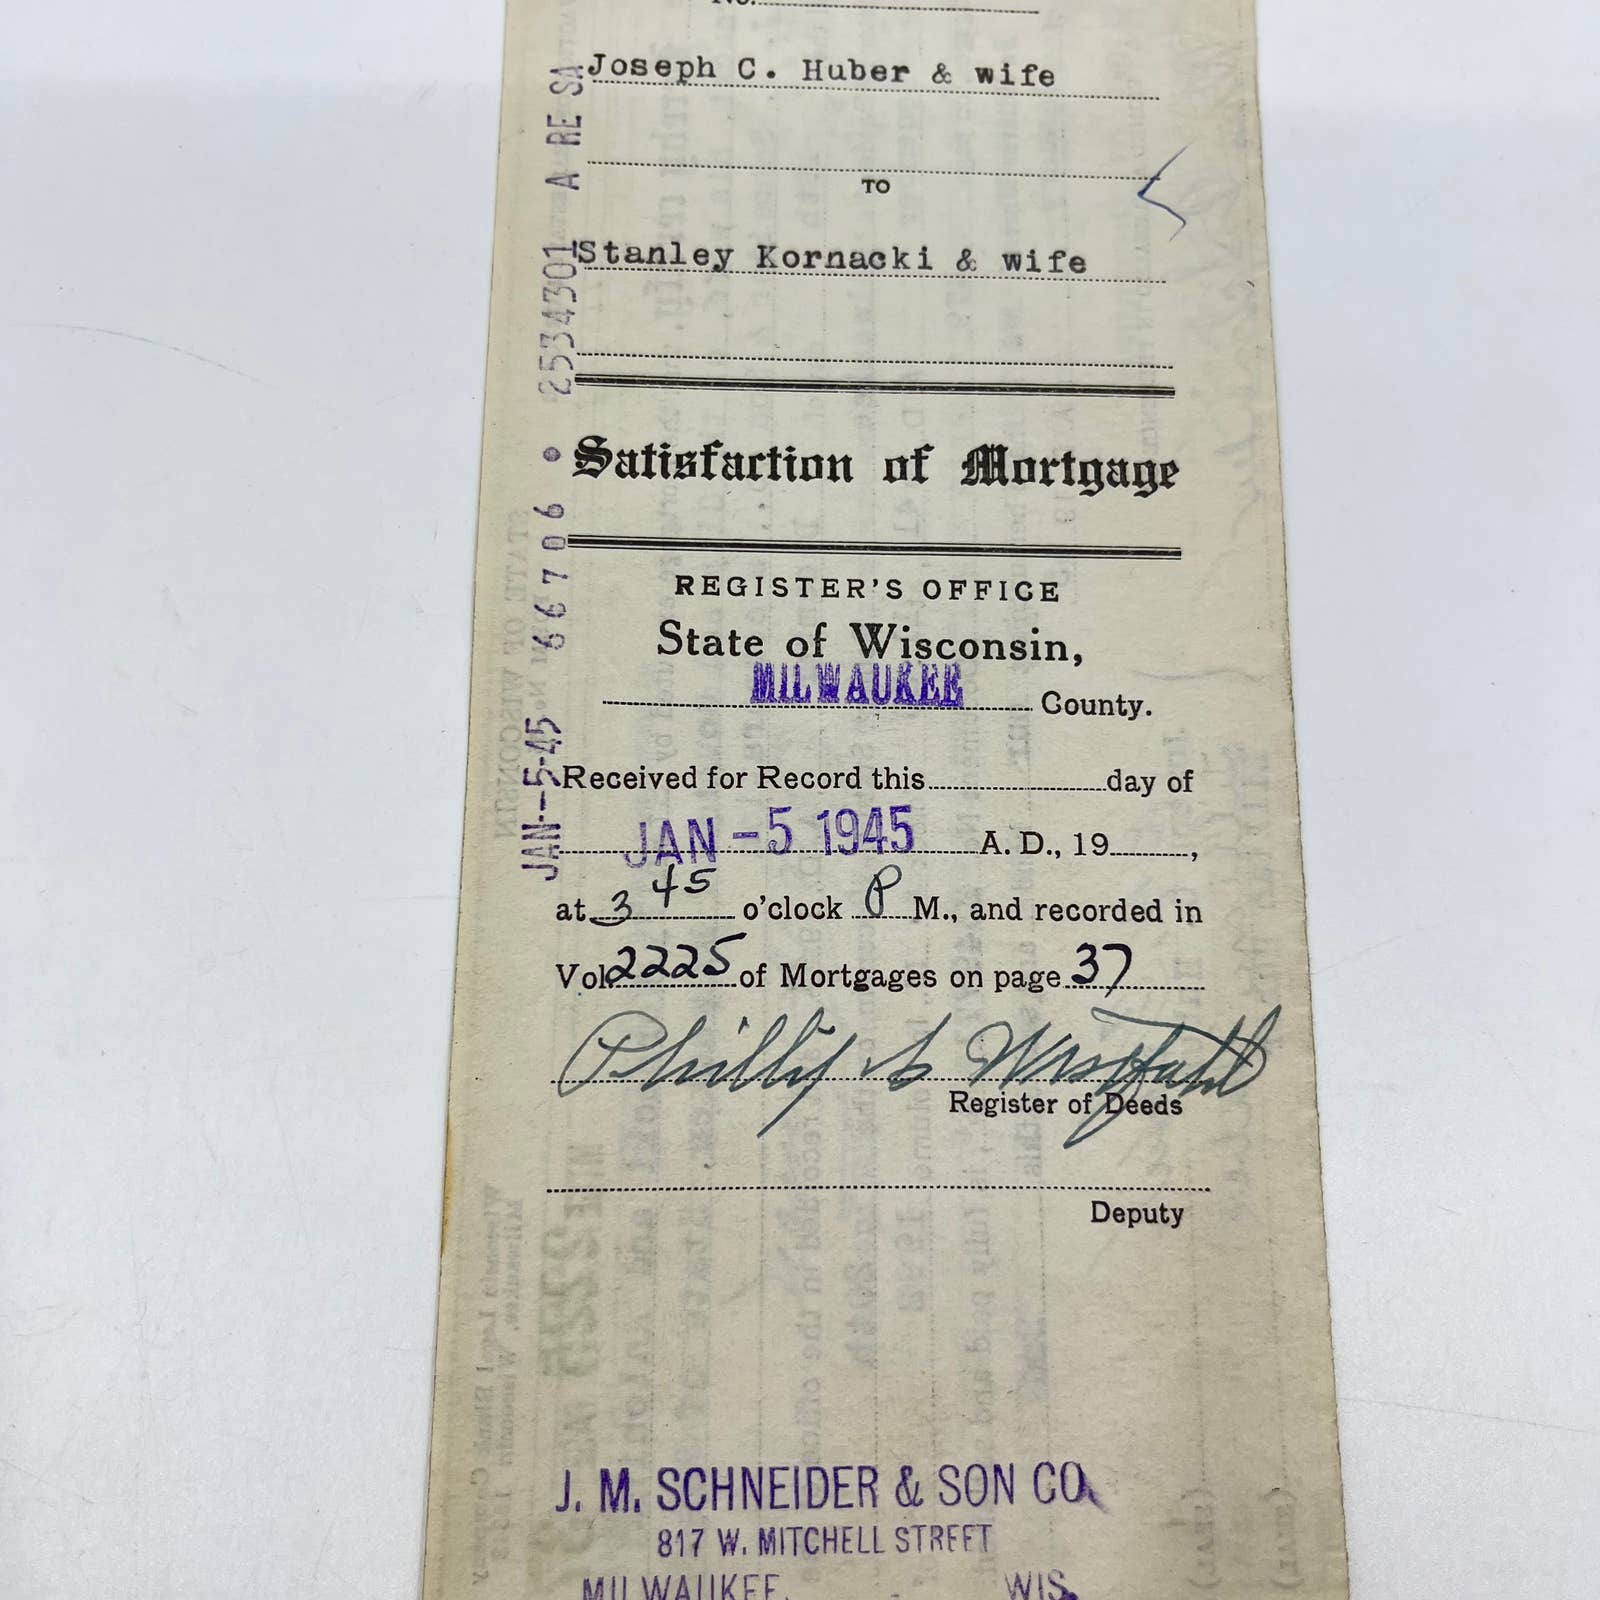 No.
Joseph C. Huber & wife
TO
Stanley Kornacki & wife
Satisfaction of Mortgage
REGISTER'S OFFICE
State of Wisconsin,
MILWAUKEE County.
Received for Record this day of
JAN -5 1945 A. D., 19 ,
at 3 45 o'clock P M., and recorded in
Vol. 2225 of Mortgages on page 37
Register of Deeds
Deputy
J. M. SCHNEIDER & SON CO.
817 W. MITCHELL STREET
MILWAUKEE, - WIS.
JAN--5-45 66706 • 2534301 A RE SA